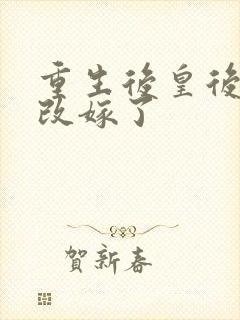 重生後皇後
改嫁了
賀新春